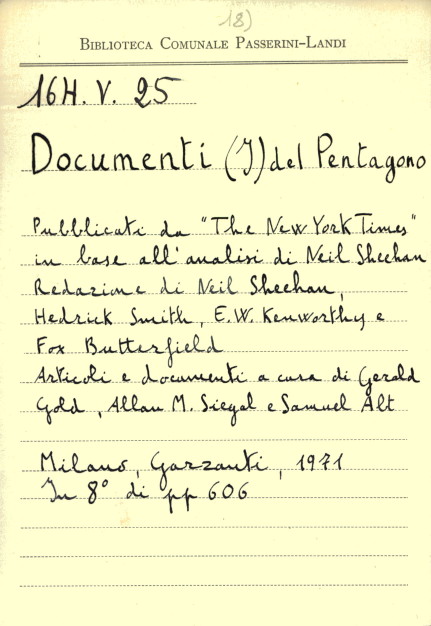 18)
BIBLIOTECA COMUNALE PASSERINI-LANDI
16H. V. 25
Documenti (I) del Pentagono
Pubblicati da "The New York Times"
in base all'analisi di Neil Sheehan
Redazione di Neil Sheehan,
Hedrick Smith, E.W. Kenworthy e
Fox Butterfield
Articoli e documenti a cura di Gerald
Gold, Allan M. Siegal e Samuel Alt
Milano, Garzanti, 1971
In 8° di pp 606